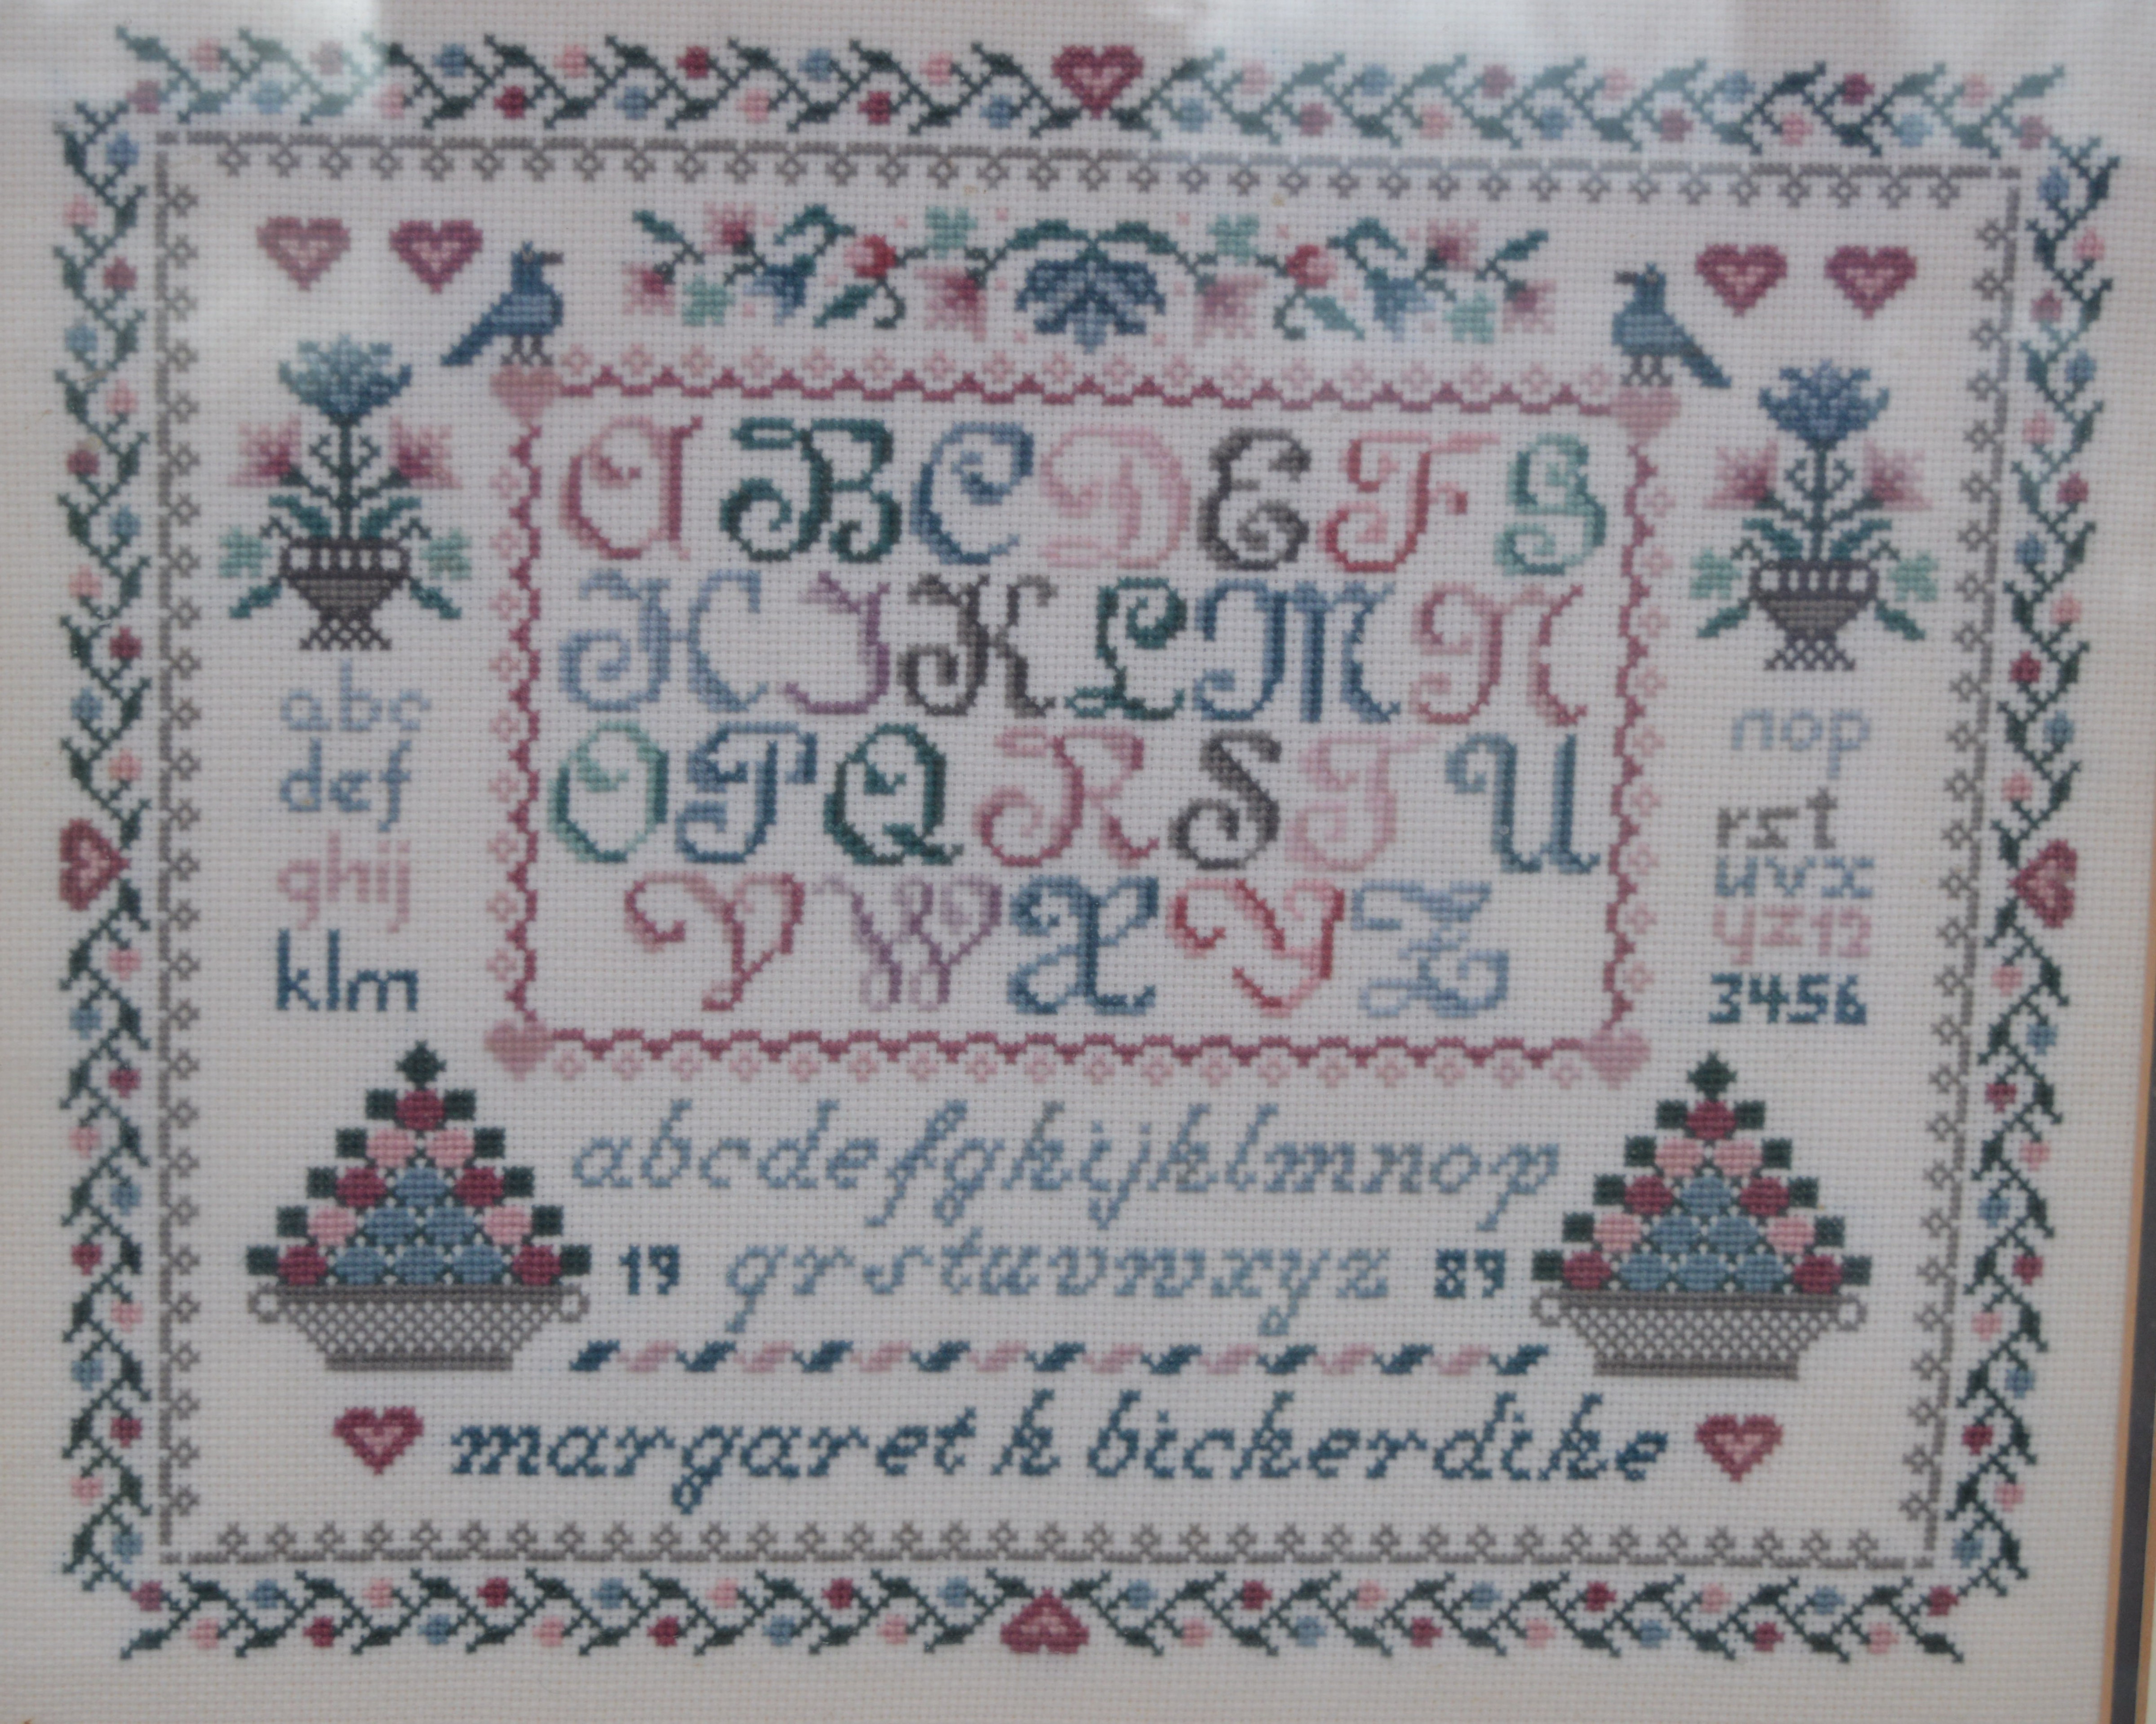 A B C D E F G
H I K L M N
O P Q R S T U
V W X Y Z
abc
def
ghij
klm
nop
rst
uvx
yz12
3456
abcdefghijklmnop
19 qrstuvwxyz 89
margaret k bickerdike